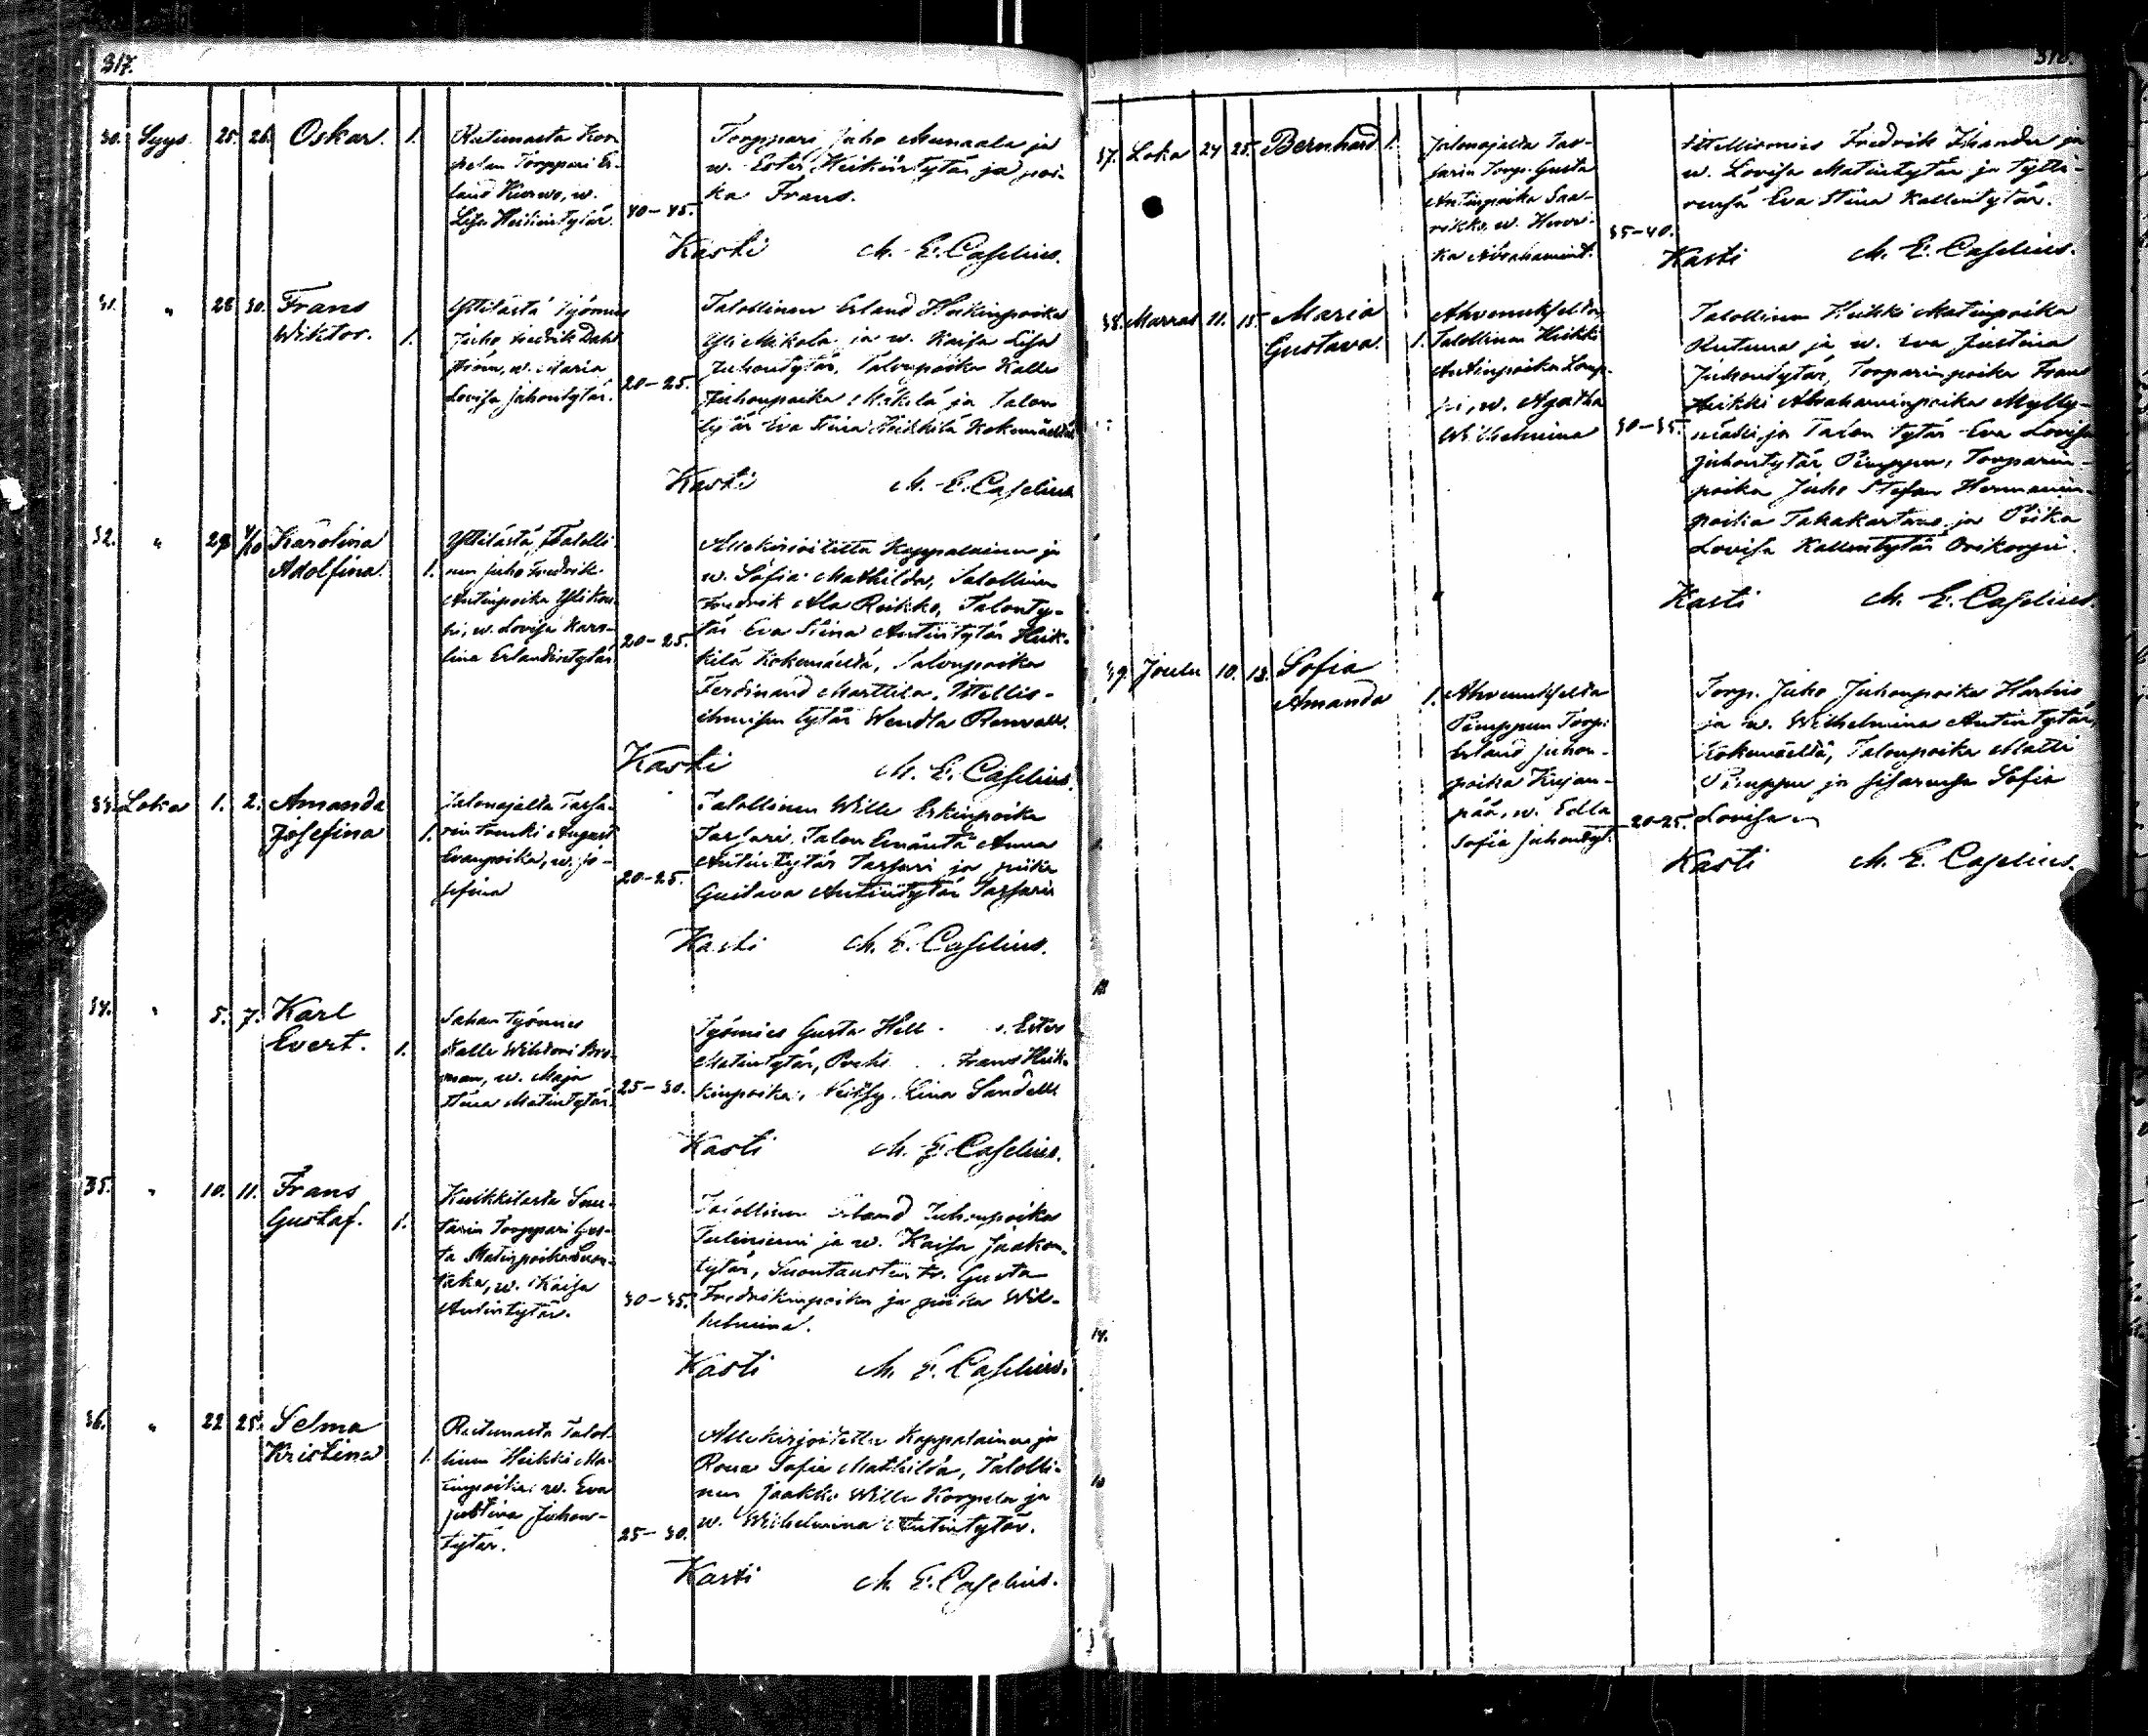 317.
30. Syys 25. 26. Oskar. 1.
Rutunasta
Torppari Er-
land w.
Lisa Heikintytär.
40-45.
Torppari Juho Munaala ja
w. Ester Heikintytär ja poi-
ka Frans.
Kasti M. E. Caselius.
31. " 28 30. Frans
Wiktor. 1.
Yttilästä Työmies
Juho Fredrik Dahl
w. Maria
Lovisa Juhontytär.
20-25.
Talollinen Erland Heikinpoika
Yli Mikola ja w. Kaisa Lisa
Juhontytär, Talonpoika Kalle
Juhonpoika Mikola ja Talon
tytär Eva Stina Heikkilä Kokemäeltä
Kasti M. E. Caselius
32. " 29 1/10 Karolina
Adolfina. 1.
Yttilästä Talolli-
nen Juho Fredrik
Antinpoika
w. Lovisa Karo-
lina Erlandintytär
20-25.
Allekirjoitettu Kappalainen ja
w. Sofia Mathilda, Talollinen
Fredrik Ala Roikko, Talonty-
tär Eva Stina Antintytär Heik-
kilä Kokemäeltä, Talonpoika
Ferdinand Marttila, Itellis-
ihmisen tytär Wendla Renvall.
Kasti M. E. Caselius.
33. Loka 1. 2. Amanda
Josefina 1.
Jalonojalta Tarsa-
rin August
w. Jo-
sefina
20-25.
Talollinen Wille Erkinpoika
Tarsari, Talon Emäntä Anna
Antintytär Tarsari ja piika
Gustava Antintytär Tarsari
Kasti M. E. Caselius.
34. " 5. 7. Karl
Evert. 1.
Sahan työmies
Kalle
w. Maja
Stina Matintytär.
25-30.
Työmies Gusta Hell Ester
Matintytär, Frans Heik-
kinpoika, Neitsy Lina Sandell
Kasti M. E. Caselius.
35. " 10. 11. Frans
Gustaf. 1.
Kuikkilasta
Torppari Gus-
ta Matinpoika Suon-
taka, w. Kaisa
Antintytär.
30-35.
Talollinen Erland Juhonpoika
Juliniemi ja w. Kaisa Jaakon-
tytär, Gusta
Fredrikinpoika ja piika Wil-
helmina.
Kasti M. E. Caselius.
36. " 22 25. Selma
Kristina 1.
Rutunasta Talol-
linen Heikki Ma-
tinpoika w. Eva
Justina Juhon-
tytär.
25-30.
Allekirjoitettu Kappalainen ja
Roua Sofia Mathilda, Talolli-
nen Jaakko Wille Korpela ja
w. Wilhelmina Antintytär.
Kasti M. E. Caselius.
318.
37. Loka 24 25. Bernhard 1.
Jalonojalta Tar-
sarin Torp. Gusta
Antinpoika Saa-
rikko, w.
Abrahamint.
35-40.
Itellismies Fredrik ja
w. Lovisa Matintytär ja Tyttä-
rensä Eva Stina Kallentytär.
Kasti M. E. Caselius.
38. Marras 11. 15. Maria
Gustava. 1.
Ahvenukselta
Talollinen Heikki
Antinpoika
w. Agatha
Wilhelmina
30-35.
Talollinen Heikki Matinpoika
Rutuna ja w. Eva Justina
Juhontytär, Torparinpoika Frans
Heikki Abrahaminpoika Mylly-
ja Talon tytär Eva Lovisa
Juhontytär Pimppu, Torparin-
poika Juho Stefan Hermanin-
poika Takakartano ja Piika
Lovisa Kallentytär Orikorpi.
Kasti M. E. Caselius.
39. Joulu 10. 13. Sofia
Amanda 1.
Ahvenukselta
Pimppun Torp.
Erland Juhon-
poika Kujan-
pää, w. Edla
Sofia Juhontyt.
20-25.
Torp. Juho Juhonpoika
ja w. Wilhelmina Antintytär,
Kokemäeltä, Talonpoika Matti
Pimppu ja sisarensa Sofia
Lovisa
Kasti M. E. Caselius.